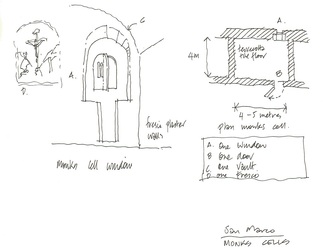 C
A.
D.
fresco plaster
walls
Monks cell window
A.
terracotta
tile floor
4m
B
4-5 metres
plan monks cell.
A. one window
B one door
C one vault
D one fresco
San Marco
MONKS CELLS